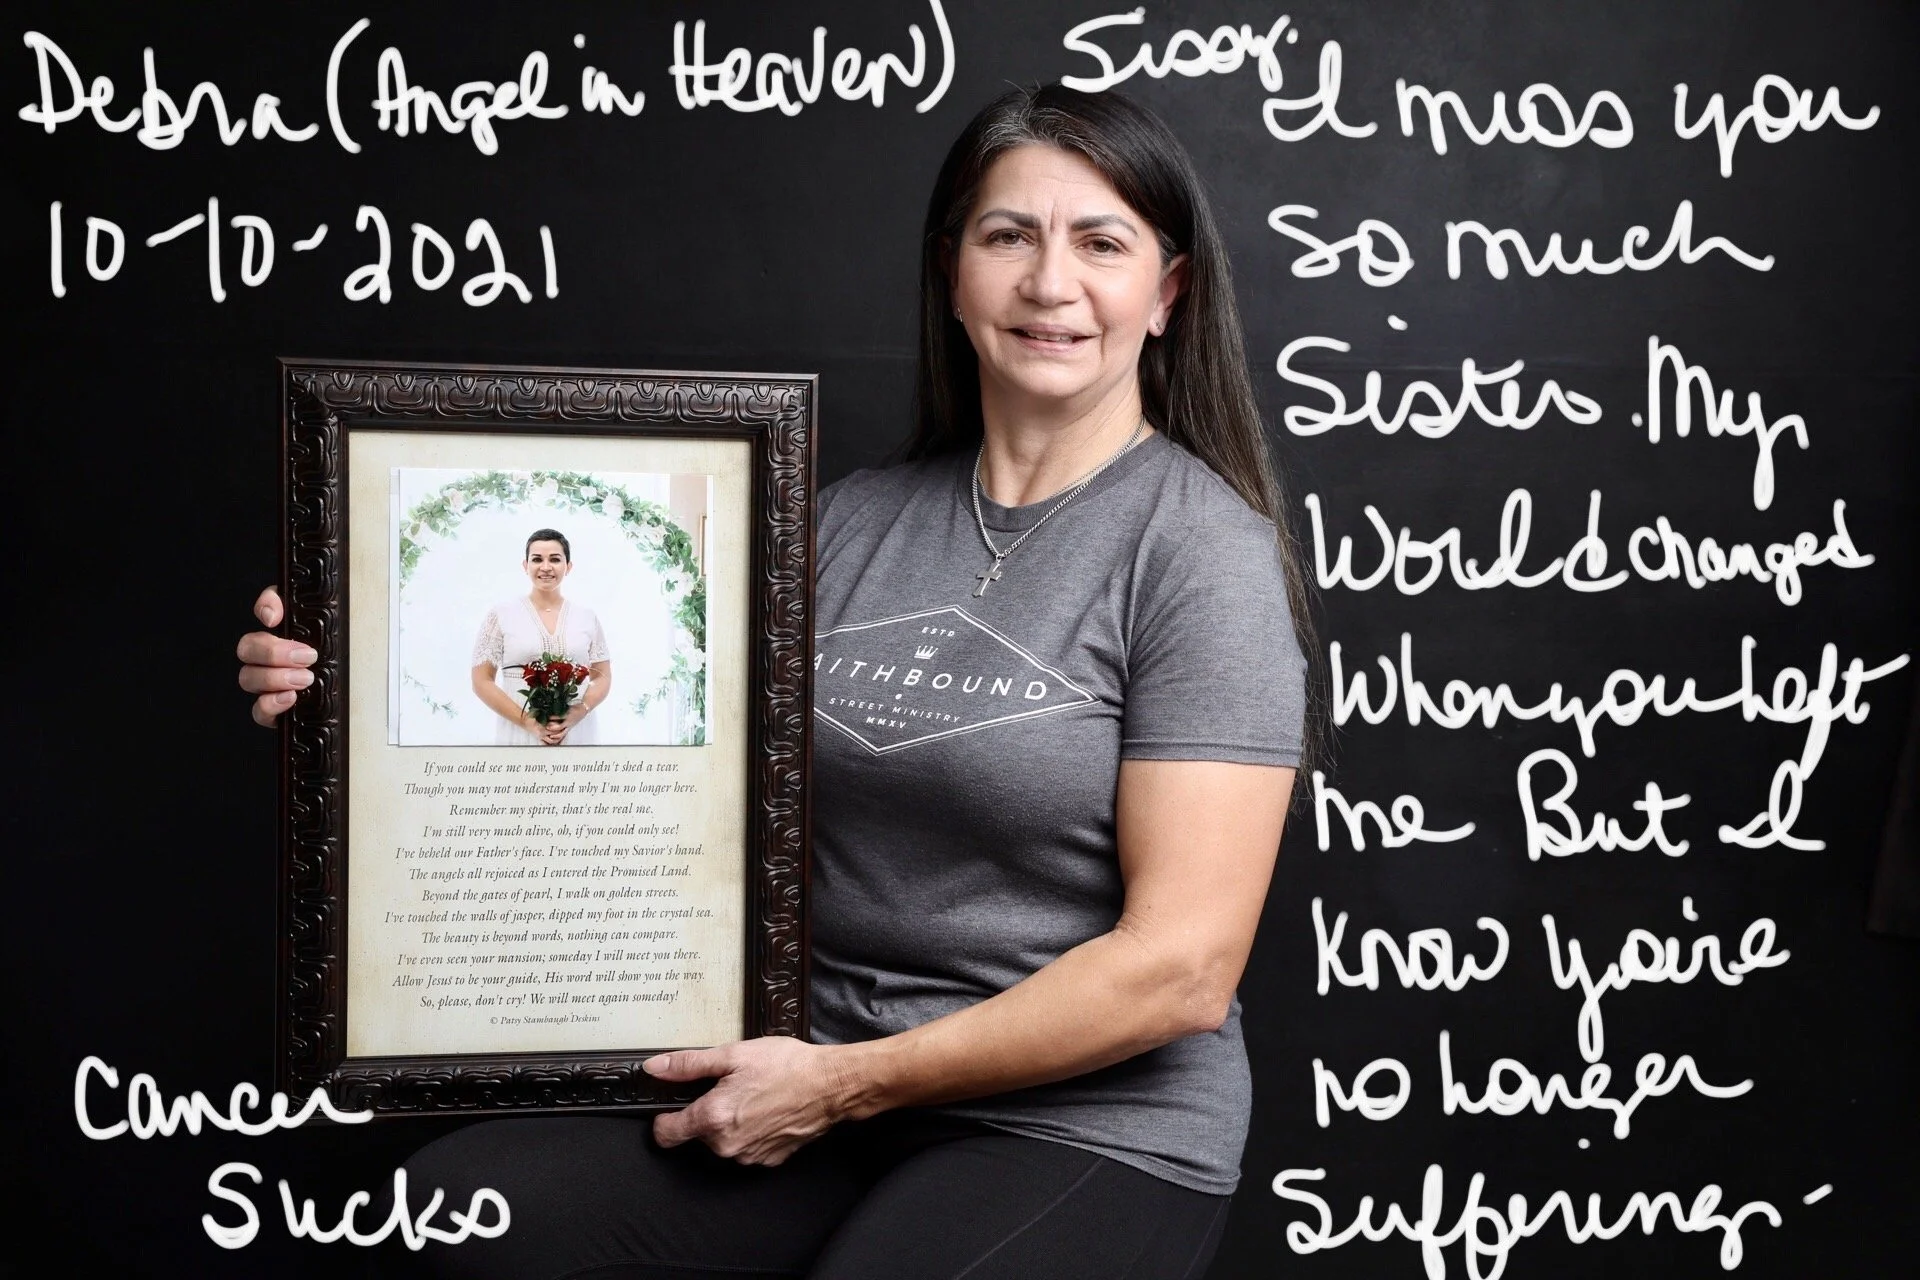 Debra (Angel in Heaven)
10-10-2021
Sissy.
I miss you
so much
Sister. My
World changed
When you left
me But I
know you're
no longer
Suffering-
Cancer
Sucks
ESTD
AITHBOUND
STREET MINISTRY
MMXV
If you could see me now, you wouldn't shed a tear.
Though you may not understand why I'm no longer here.
Remember my spirit, that's the real me.
I'm still very much alive, oh, if you could only see!
I've beheld our Father's face. I've touched my Savior's hand.
The angels all rejoiced as I entered the Promised Land.
Beyond the gates of pearl, I walk on golden streets.
I've touched the walls of jasper, dipped my foot in the crystal sea.
The beauty is beyond words, nothing can compare.
I've even seen your mansion; someday I will meet you there.
Allow Jesus to be your guide, His word will show you the way.
So, please, don't cry! We will meet again someday!
© Patsy Stambaugh Deskins